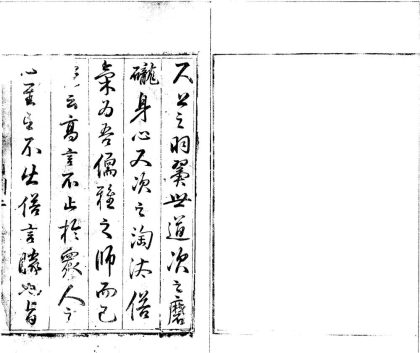 上之羽翼世道次之磨
礲身心又次之淘汰俗
氣為吾儒雅之師而已
云高言不止於眾人之
心至言不出俗言勝也旨